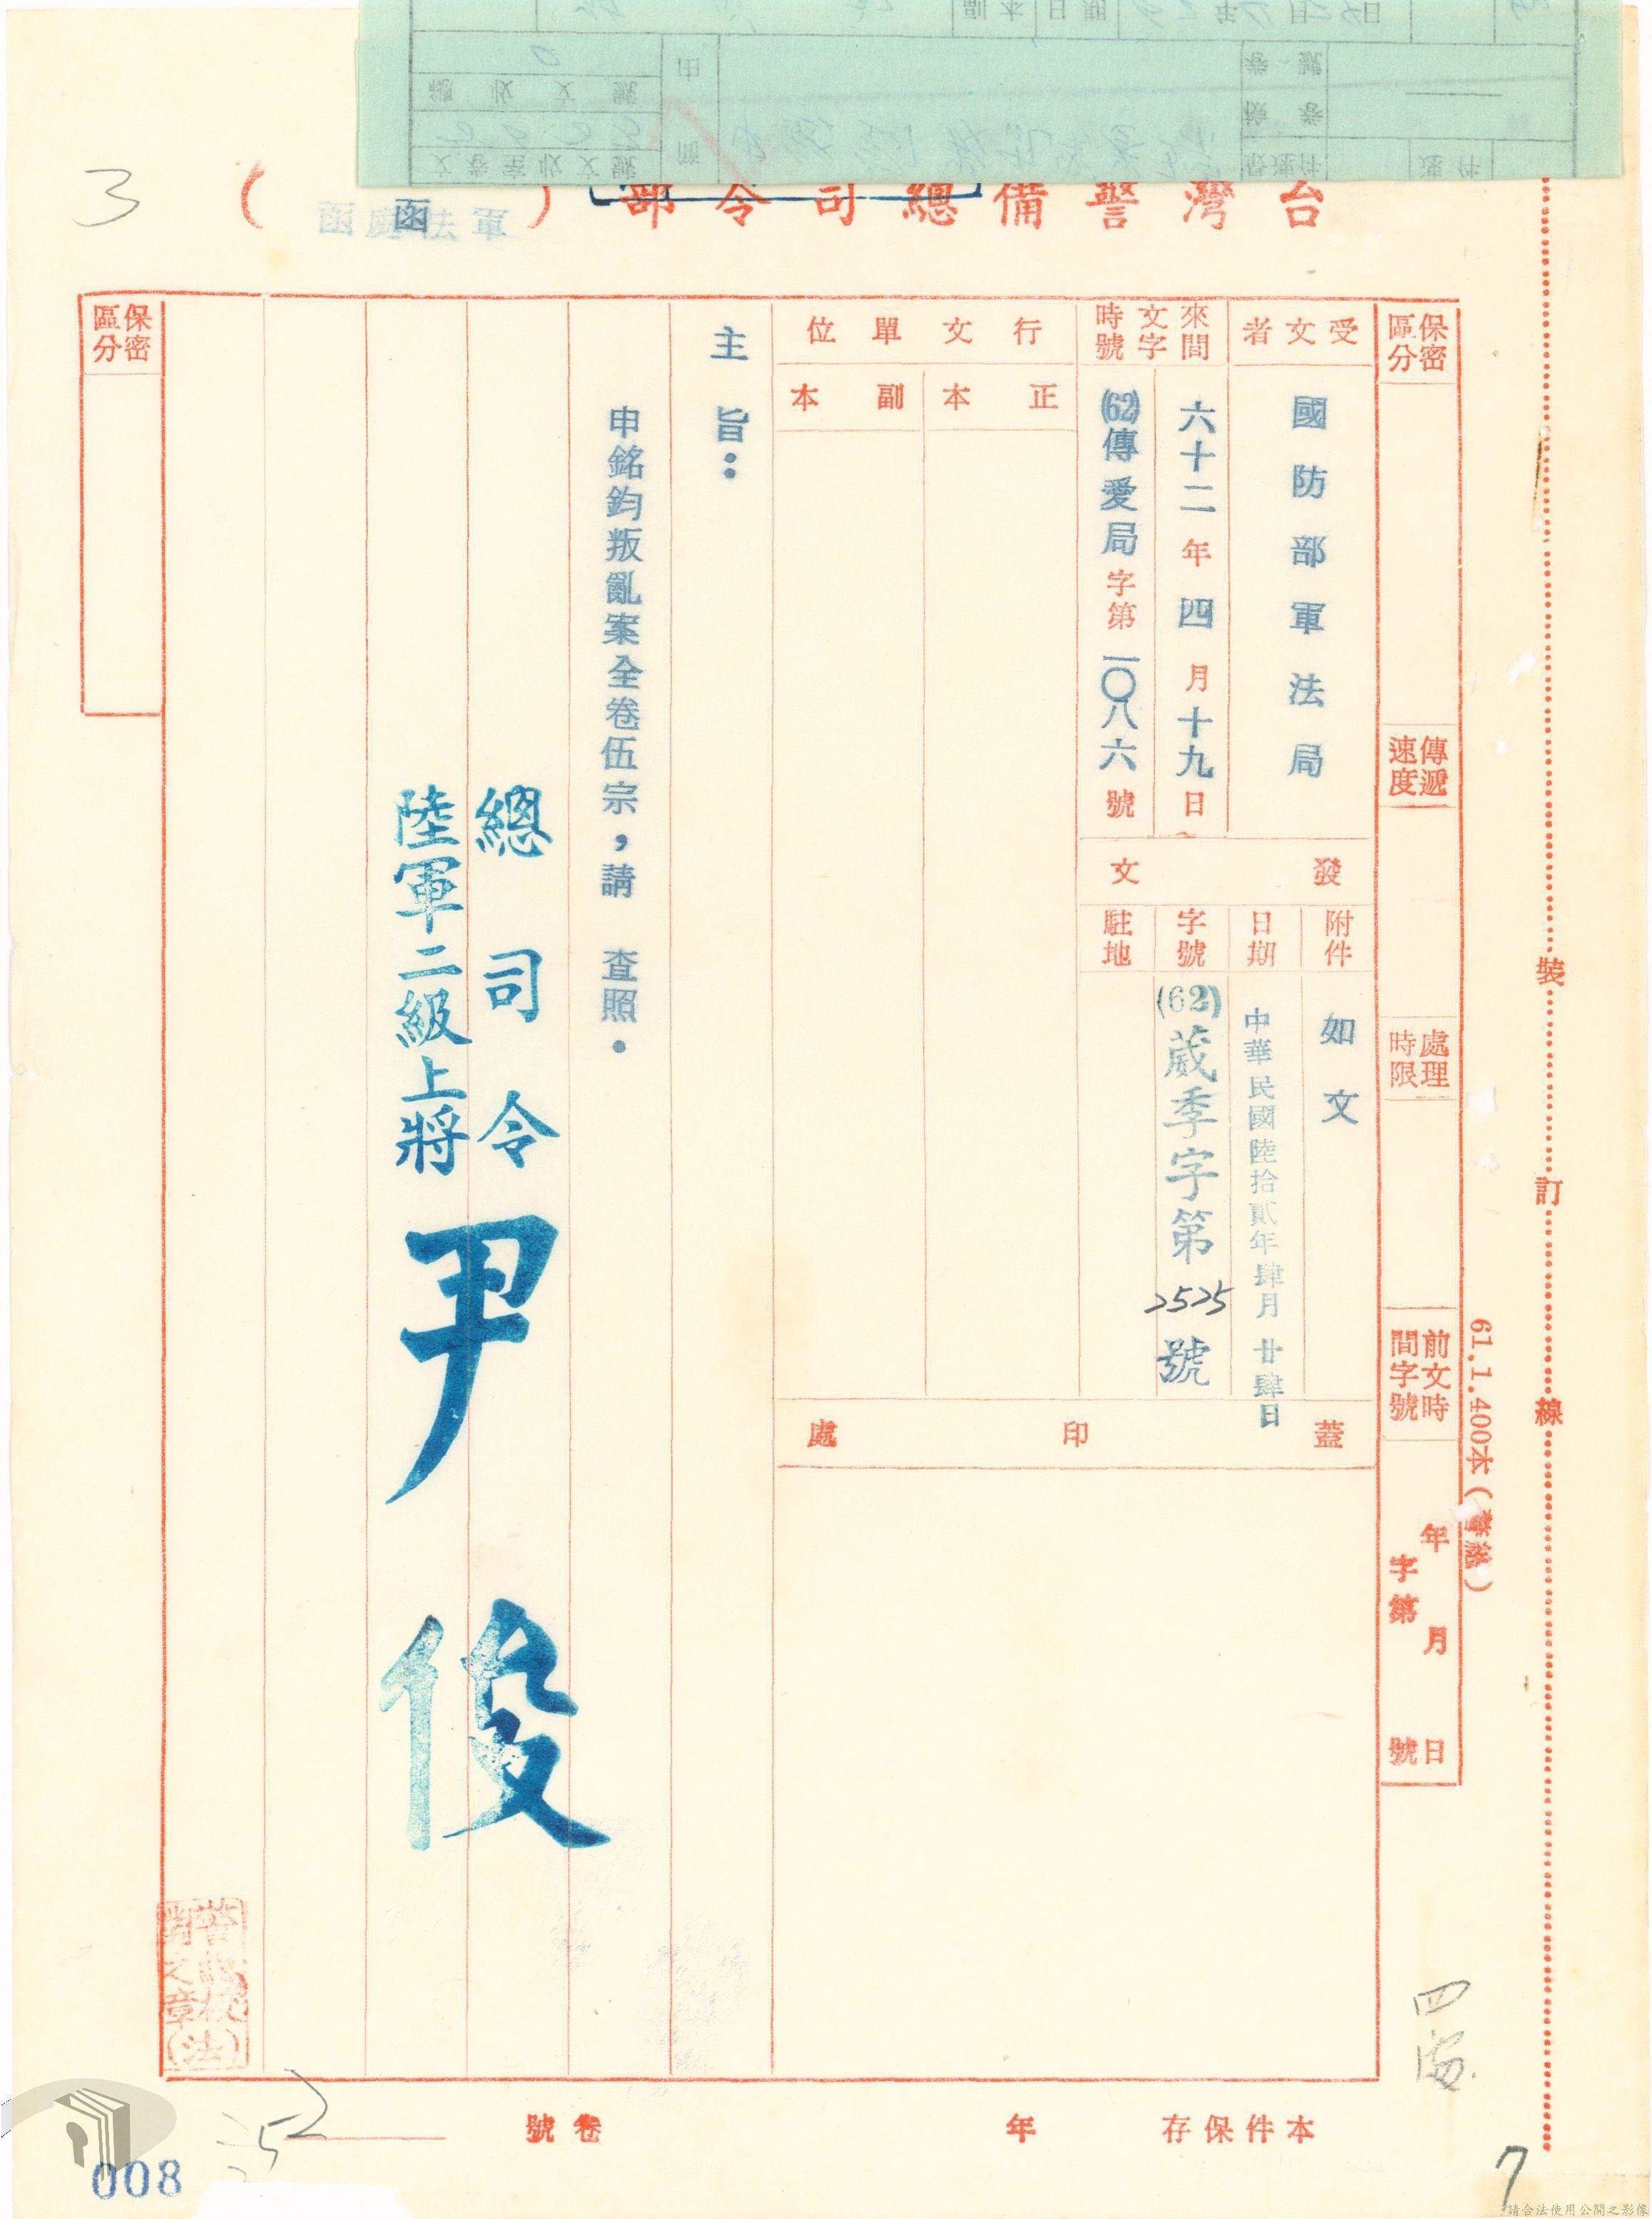 副本日期
年 月 日
總收文號
文卷室收文號
前
由
檢卷
卷號
最速件
速件
台灣警備總司令部(函)
軍法處函
3
保密區分
傳遞速度
處理時限
前文時間字號
年 月 日
字第 號
受文者
國防部軍法局
來文時間字號
六十二年四月十九日
(62)傳愛局字第一〇八六號
發文
附件
如文
日期
中華民國陸拾貳年肆月廿肆日
字號
(62)葳季字第2525號
駐地
行文單位
正本
副本
蓋印處
主旨:
申銘鈞叛亂案全卷伍宗,請 查照.
總司令
陸軍二級上將
尹俊
保密區分
裝
訂
線
61.1.400本(警總)
本件保存 年
卷號
008
7
請合法使用公開之影像